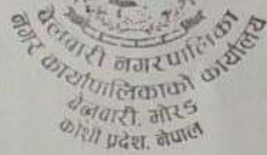 बेलबारी नगरपालिका
नगर कार्यपालिकाको कार्यालय
बेलबारी, मोरङ
कोशी प्रदेश, नेपाल